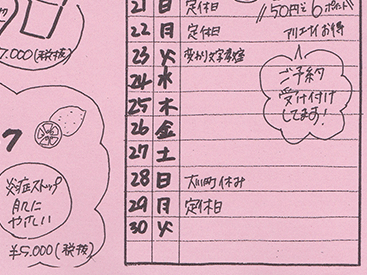 21 日 定休日
22 月 定休日
23 火
24 水
25 木
26 金
27 土
28 日 休み
29 月 定休日
30 火
50円で6ポイント
お得
ご予約
受け付け
してます!
7.000(税抜)
炎症ストップ
肌に
やさしい
¥5.000(税抜)